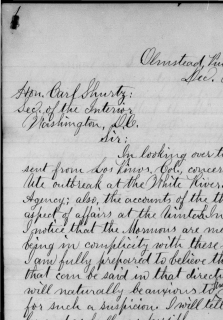 Olmstead,
Dec.
Hon. Carl Shurtz:
Sec. of the Interior
Washington, D.C.
Sir:
In looking over t
sent from Los Pinos, Col., concer
Ute outbreak at the White River
Agency; also, the accounts of the
aspect of affairs at the Uintah
I notice that the Mormons are me
being in complicity with these
I am fully prepared to believe th
that can be said in that directi
will naturally be anxious to
for such a suspicion. I will tell